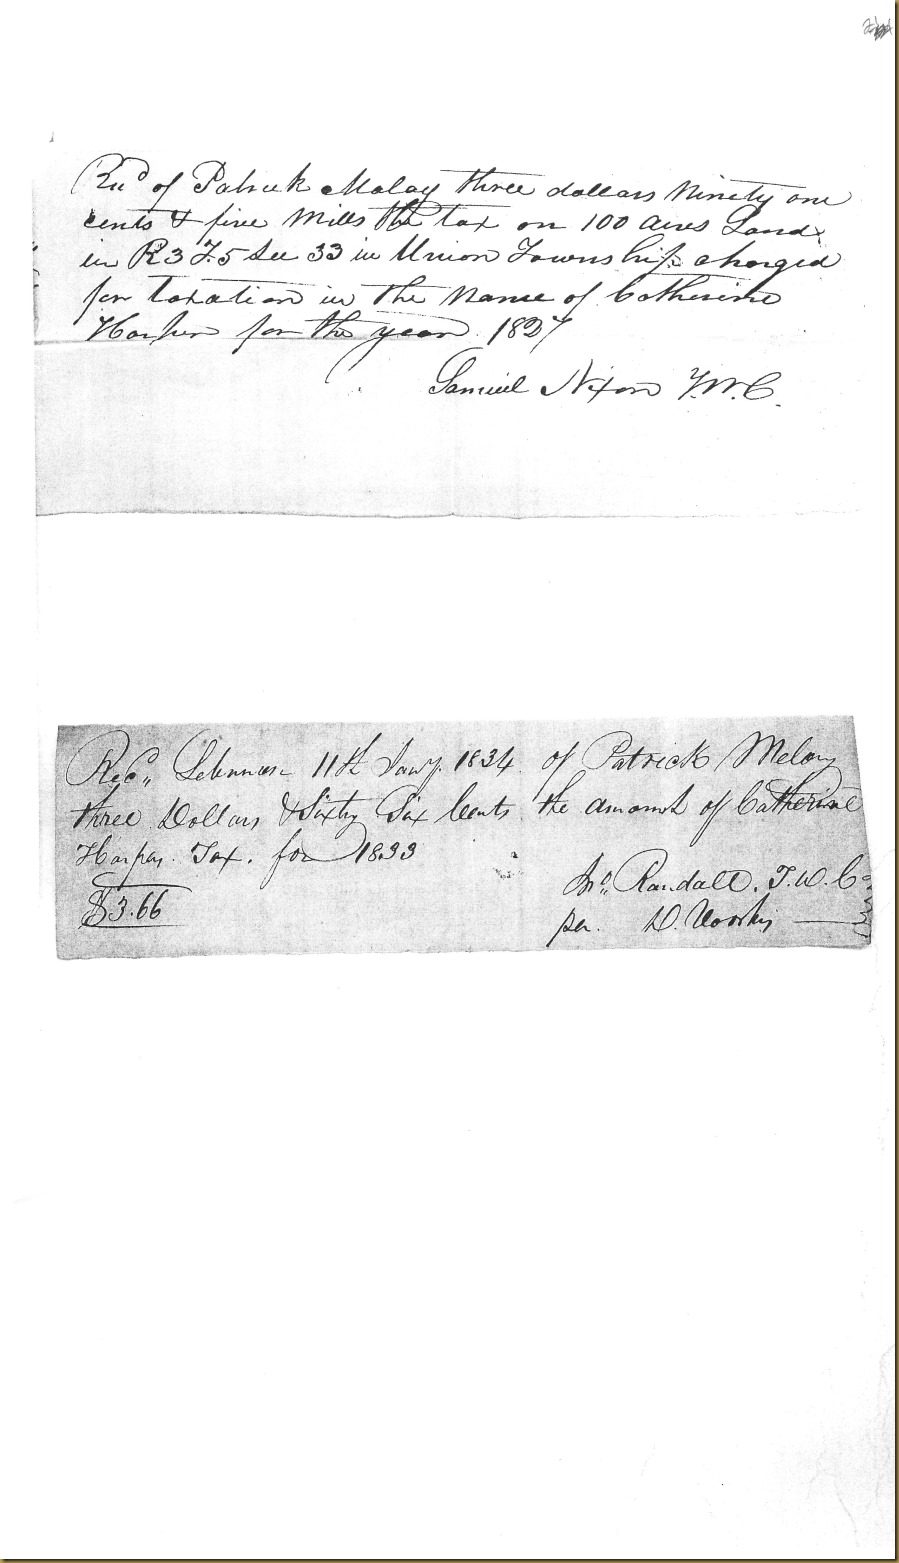 Recd of Patrick Maloy three dollars Ninety one
cents & five Mills the tax on 100 acres Land
in R3 T.5 Sec 33 in Union Township charged
for taxation in the Name of Catherine
Harper for the year 1827
Samuel Nixon T.W.C.
Rec,, Lebanon 11th Jany. 1834 of Patrick Meloy
three Dollars & Sixty Six Cents the amount of Catherine
Harpers Tax. for 1833
$3.66
Jno. Randall. T.W.C
per. D. Voorhis